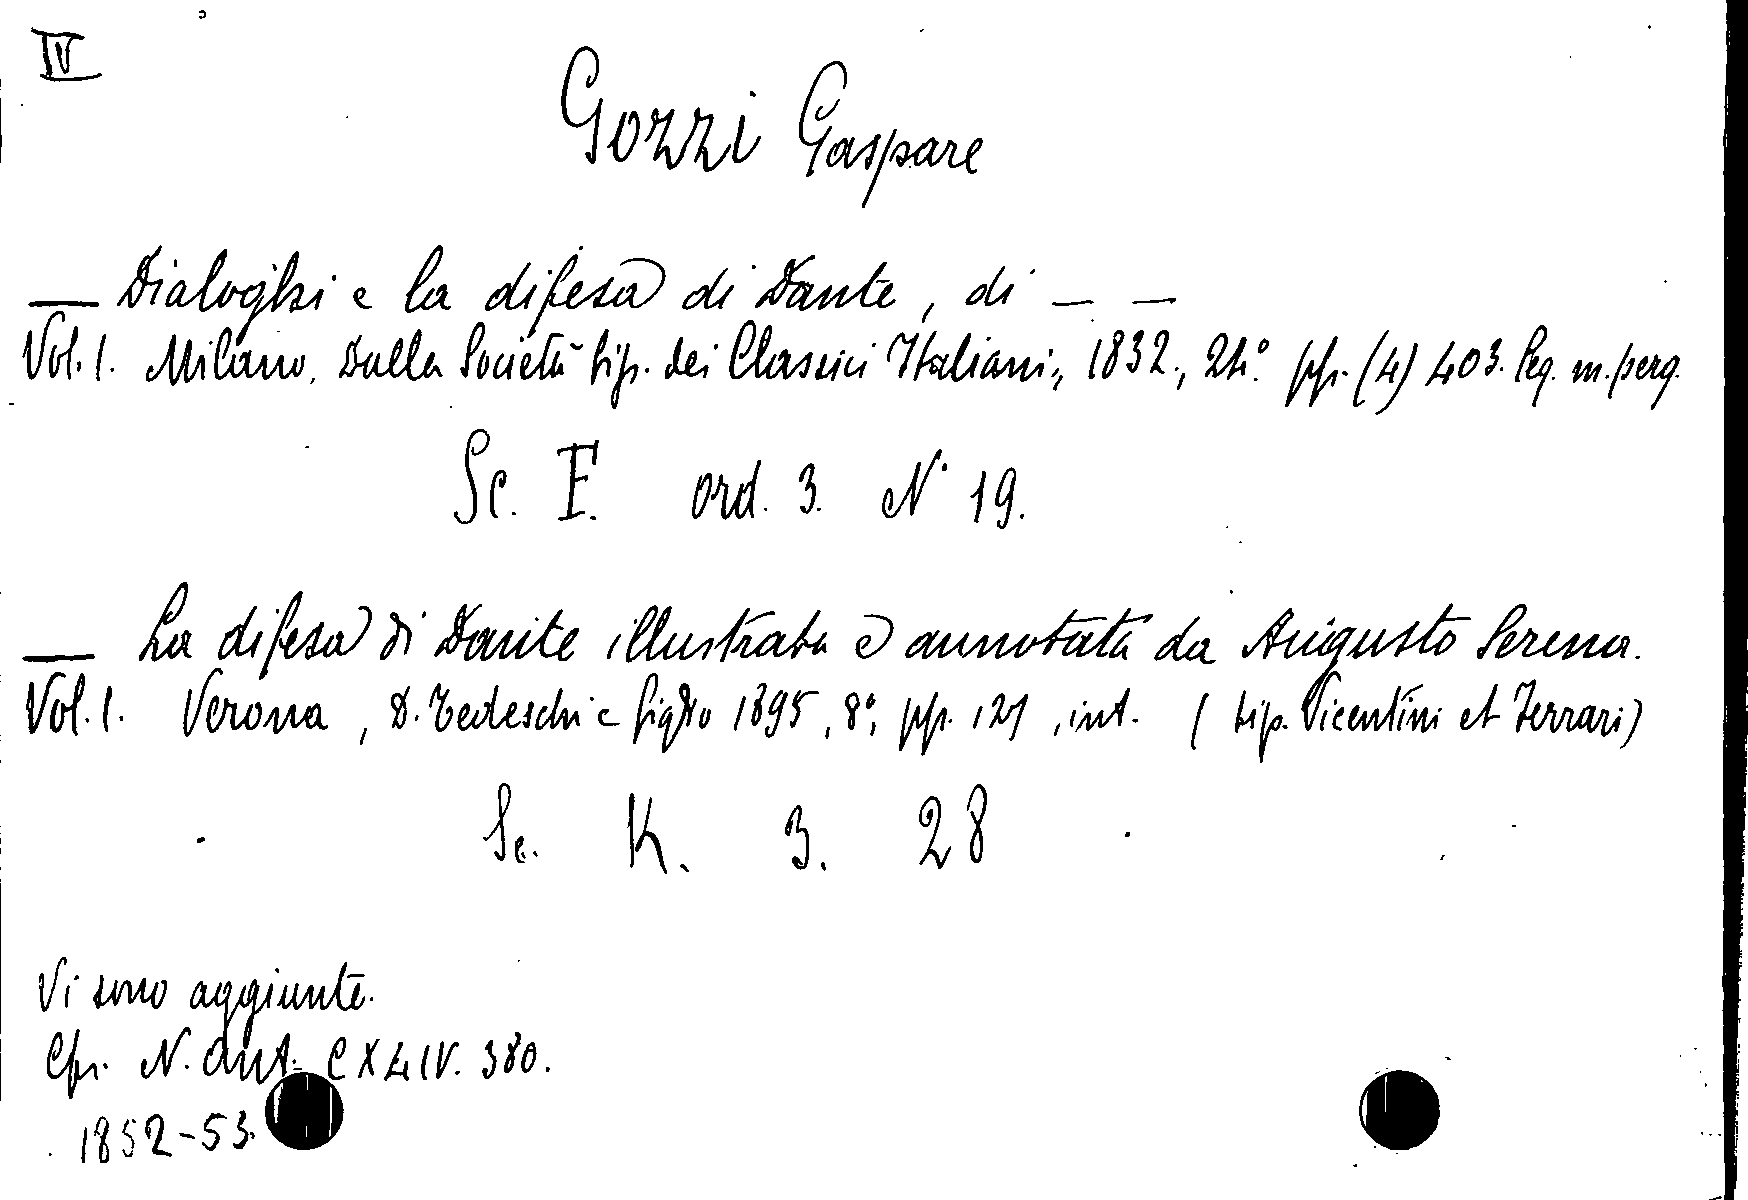 IV
Gozzi Gaspare
— Dialoghi e la difesa di Dante, di — —
Vol. 1. Milano, Dalla Società tip. dei Classici Italiani, 1832, 24° pp. (4) 403. leg. m. perg.
Sc. F. ord. 3. N° 19.
— La difesa di Dante illustrata e annotata da Augusto Serena.
Vol. 1. Verona, D. Tedeschi e figlio 1895, 8°, pp. 121, int. (tip. Vicentini et Ferrari)
Sc. K. 3. 28
Vi sono aggiunte.
Cfr. N. Ant. CXLIV. 380.
1852-53.